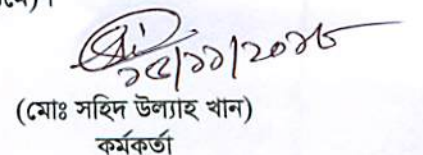 ১৫/১১/২০১৮
(মোঃ সহিদ উল্যাহ খান)
কর্মকর্তা